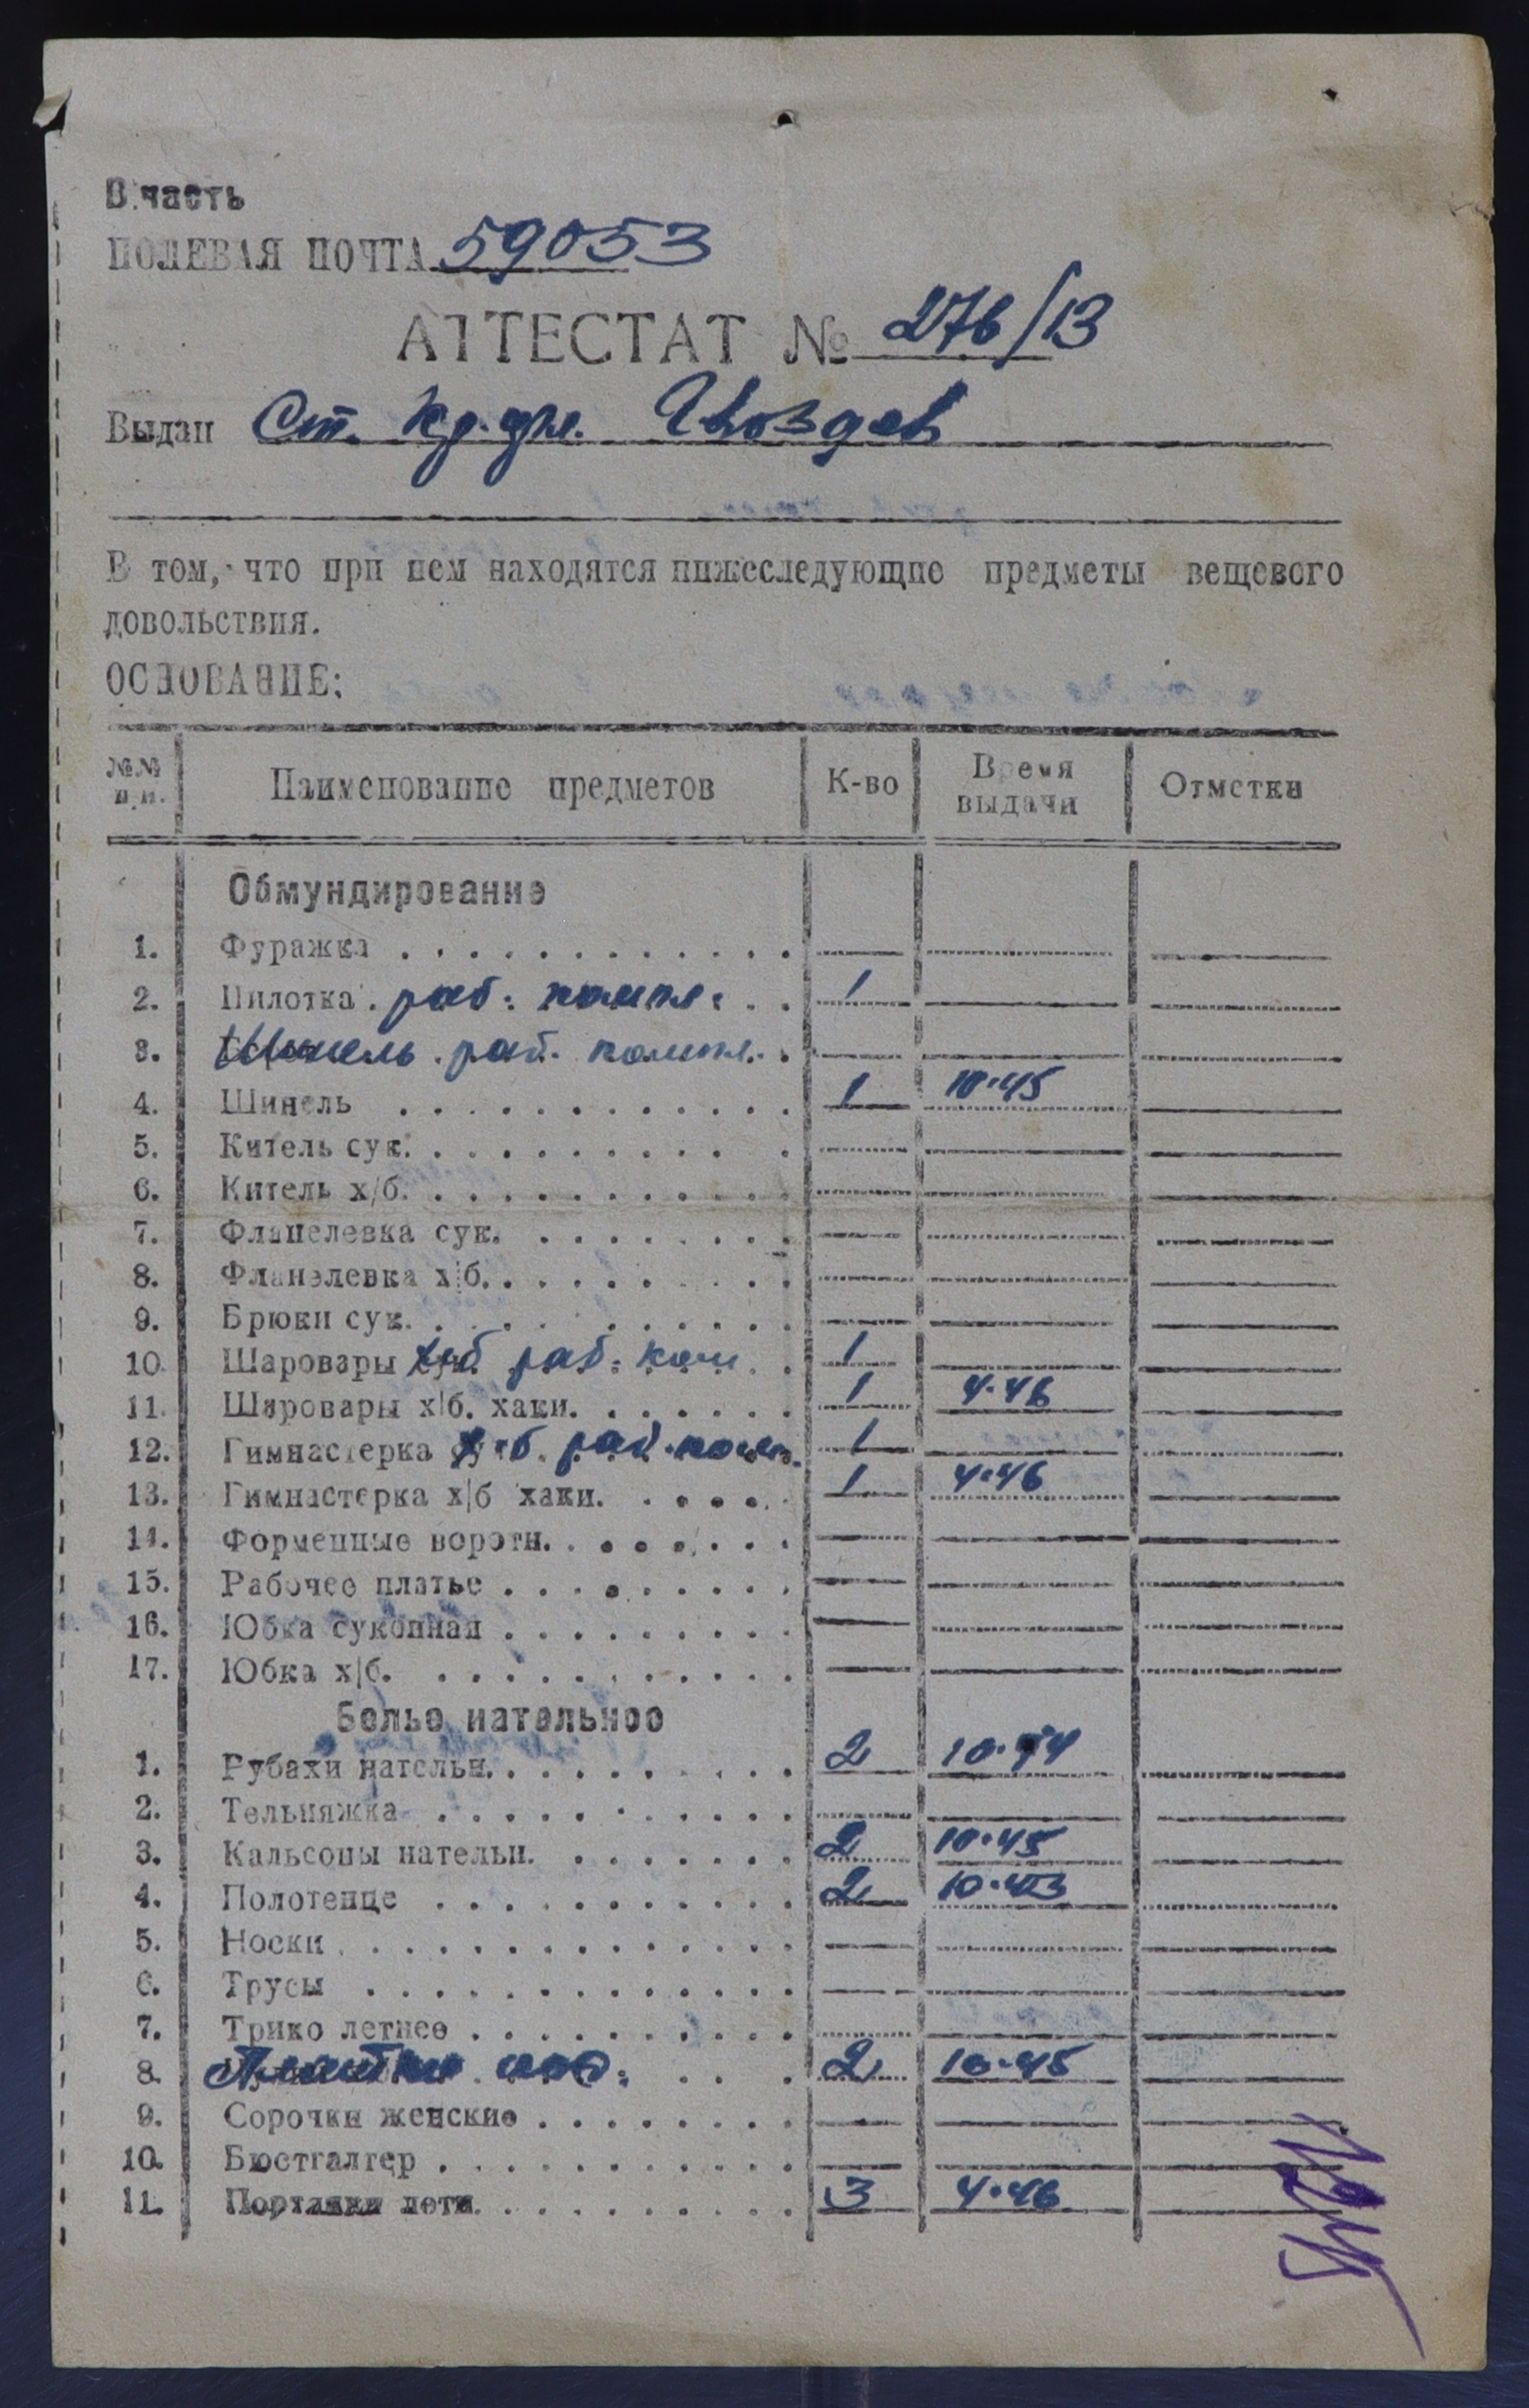 В.часть
ПОЛЕВАЯ ПОЧТА 59053
АТТЕСТАТ № 276/13
Выдан Ст. кр. Гвоздев
В том, что при нем находятся нижеследующие предметы вещевого
довольствия.
ОСНОВАНИЕ:
№№ п.п. Наименование предметов К-во Время выдачи Отметки
Обмундирование
1. Фуражка
2. Пилотка раб. компл. 1
3. Шинель раб. компл.
4. Шинель 1 10.45
5. Китель сук.
6. Китель х/б.
7. Фланелевка сук.
8. Фланелевка х/б.
9. Брюки сук.
10. Шаровары х/б раб. ком 1
11. Шаровары х/б. хаки. 1 4.46
12. Гимнастерка х/б. раб. комп. 1
13. Гимнастерка х/б хаки. 1 4.46
14. Форменные воротн.
15. Рабочее платье
16. Юбка суконная
17. Юбка х/б.
Белье нательное
1. Рубахи нательн. 2 10.44
2. Тельняжка
3. Кальсоны нательн. 2 10.45
4. Полотенце 2 10.43
5. Носки
6. Трусы
7. Трико летнее
8. Платки нос. 2 10.45
9. Сорочки женские
10. Бюстгалтер
11. Портянки летн. 3 4.46